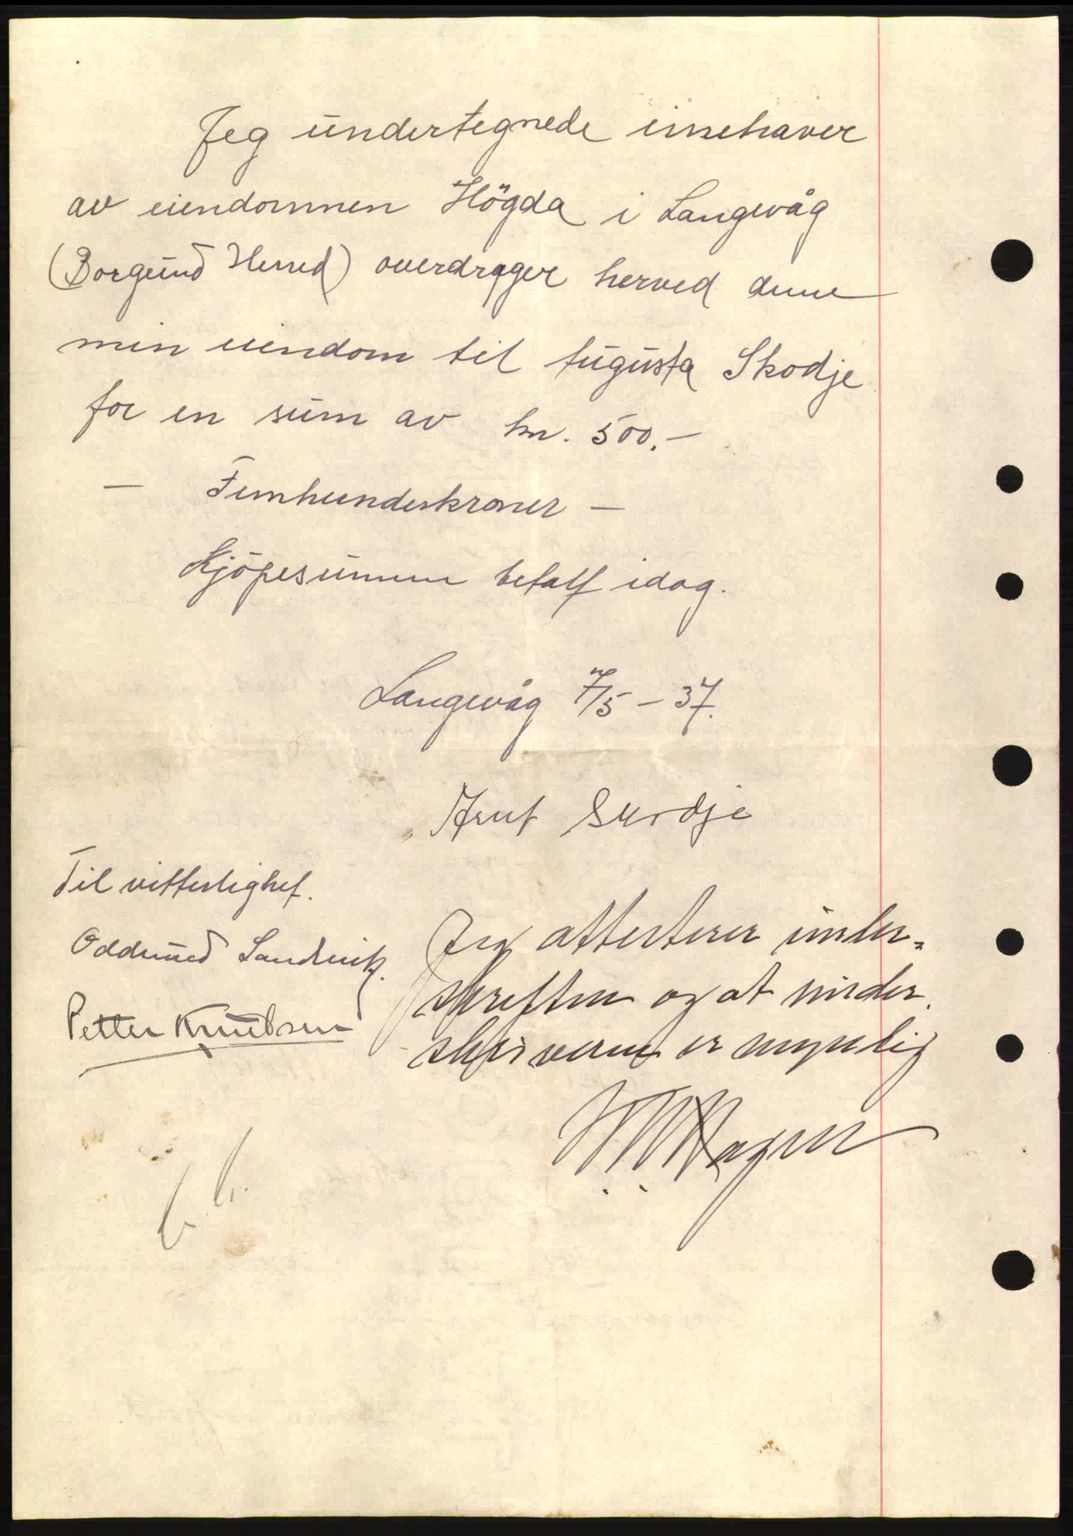 Jeg undertegnede innehaver
av eiendommen Högda i Langevåg
(Borgund Herred) overdrager herved denne
min eiendom til Augusta Skodje
for en sum av kr. 500.-
- Femhundrekroner -
Kjöpesummen betalt idag.
Langevåg 7/5 - 37.
Knut Skodje
Til vitterlighet.
Oddmund Sandvik.
Petter Knutsen
Jeg attesterer under-
skriften og at under-
skriveren er myndig